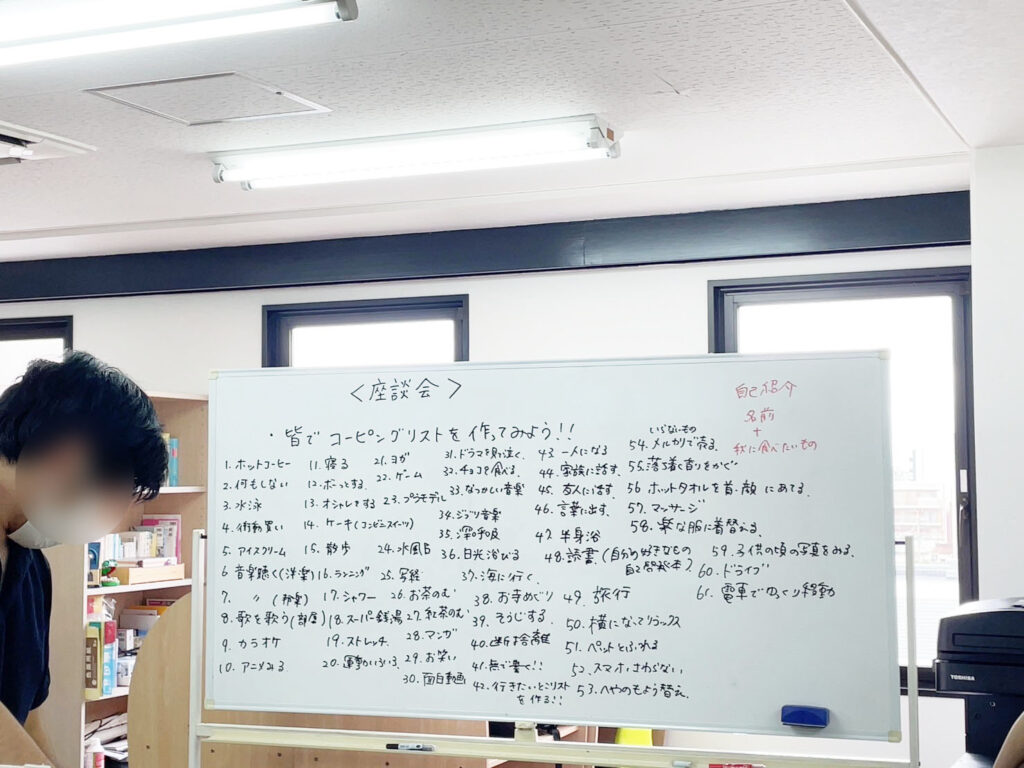 ＜座談会＞
・皆でコーピングリストを作ってみよう!!
1. ホットコーヒー
2. 何もしない
3. 水泳
4. 衝動買い
5. アイスクリーム
6. 音楽聴く(洋楽)
7. 〃 (邦楽)
8. 歌を歌う(部屋)
9. カラオケ
10. アニメみる
11. 寝る
12. ボーっとする
13. オシャレする
14. ケーキ(コンビニスイーツ)
15. 散歩
16. ランニング
17. シャワー
18. スーパー銭湯
19. ストレッチ
20. 運動
21. ヨガ
22. ゲーム
23. プラモデル
24. 水風呂
25. 写経
26. お茶のむ
27. 紅茶のむ
28. マンガ
29. お笑い
30. 面白動画
31. ドラマを見て泣く
32. チョコを食べる
33. なつかしい音楽
34. ジブリ音楽
35. 深呼吸
36. 日光浴びる
37. 海に行く
38. お寺めぐり
39. そうじする
40. 断捨離
41. 無で書く!!
42. 行きたいとこリスト
を作る!!
43. 一人になる
44. 家族に話す
45. 友人に話す
46. 言葉に出す
47. 半身浴
48. 読書(自分の好きなもの
自己啓発本)
49. 旅行
50. 横になってリラックス
51. ペットとふれる
52. スマホさわらない
53. へやのもよう替え
いらないもの
54. メルカリで売る
55. 落ち着く香りをかぐ
56 ホットタオルを首・顔にあてる
57. マッサージ
58. 楽な服に着替える
59. 子供の頃の写真をみる
60. ドライブ
61. 電車でゆっくり移動
自己紹介
名前
+
秋に食べたいもの
TOSHIBA